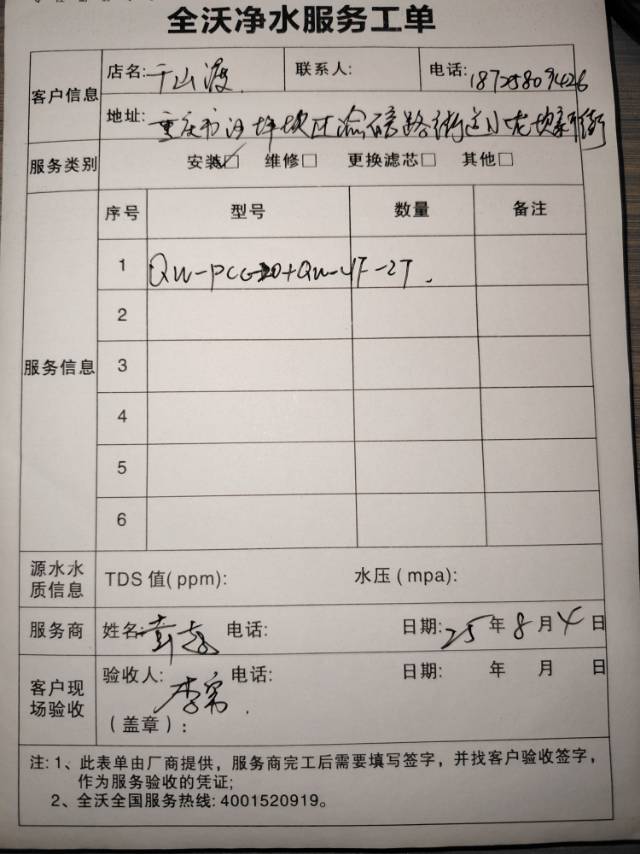 全沃净水服务工单
客户信息 店名:千山渡 联系人: 电话:18725809426
地址:重庆市沙坪坝区渝碚路街道小龙坎新街
服务类别 安装☑ 维修□ 更换滤芯□ 其他□
服务信息 序号 型号 数量 备注
1 QW-PCG-20+QW-4F-2T.
2
3
4
5
6
源水水质信息 TDS 值(ppm): 水压(mpa):
服务商 姓名: 电话: 日期:25年8月4日
客户现场验收 验收人: 李 电话: 日期: 年 月 日
(盖章):
注:1、此表单由厂商提供,服务商完工后需要填写签字,并找客户验收签字,
作为服务验收的凭证;
2、全沃全国服务热线:4001520919。